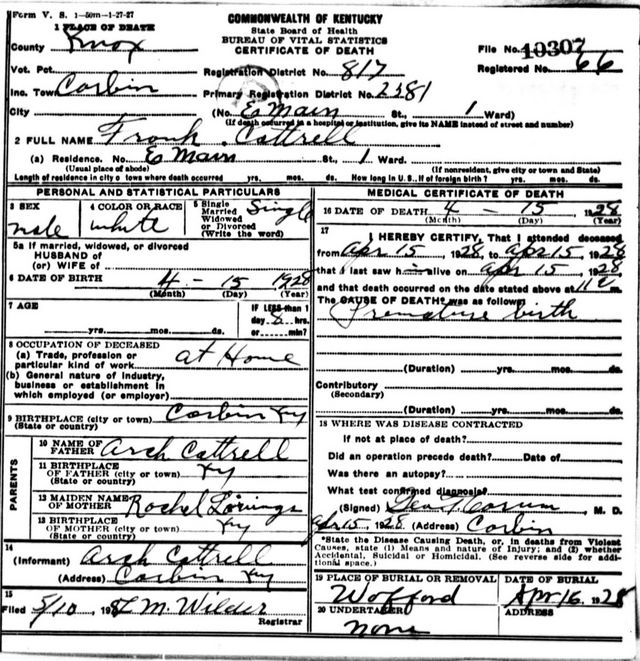 Form V. S. 1-50m-1-27-27
COMMONWEALTH OF KENTUCKY
State Board of Health
BUREAU OF VITAL STATISTICS
CERTIFICATE OF DEATH
1 PLACE OF DEATH
County Knox
File No. 10307
Registered No. 66
Vot. Pct.
Registration District No. 817
Inc. Town Corbin
Primary Registration District No. 2381
City (No. E Main St., 1 Ward)
(If death occurred in a hospital or institution, give its NAME instead of street and number)
2 FULL NAME Frank Cattrell
(a) Residence. No. E Main St., 1 Ward.
(Usual place of abode) (If nonresident, give city or town and State)
Length of residence in city or town where death occurred yrs. mos. ds. How long in U. S., if of foreign birth? yrs. mos. ds.
PERSONAL AND STATISTICAL PARTICULARS
3 SEX male
4 COLOR OR RACE white
5 Single Married Widowed or Divorced (Write the word) Single
5a If married, widowed, or divorced
HUSBAND of
(or) WIFE of
6 DATE OF BIRTH 4 - 15 1928
(Month) (Day) (Year)
7 AGE
yrs. mos. ds.
IF LESS than 1
day 8 hrs.
or min.
8 OCCUPATION OF DECEASED
(a) Trade, profession or
particular kind of work at Home
(b) General nature of industry,
business or establishment in
which employed (or employer)
9 BIRTHPLACE (city or town) Corbin Ky
(State or country)
PARENTS
10 NAME OF
FATHER Arch Cattrell
11 BIRTHPLACE
OF FATHER (city or town) Ky
(State or country)
12 MAIDEN NAME
OF MOTHER Rachel
13 BIRTHPLACE
OF MOTHER (city or town) Ky
(State or country)
14
(Informant) Arch Cattrell
(Address) Corbin Ky
15
Filed 5/10 192 M. Wilder
Registrar
MEDICAL CERTIFICATE OF DEATH
16 DATE OF DEATH 4 - 15, 1928
(Month) (Day) (Year)
17
I HEREBY CERTIFY, That I attended deceased
from Apr 15, 1928, to Apr 15, 1928
that I last saw him alive on Apr 15, 1928
and that death occurred on the date stated above at 11
The CAUSE OF DEATH was as follows:
Premature birth
(Duration) yrs. mos. ds.
Contributory
(Secondary)
(Duration) yrs. mos. ds.
18 WHERE WAS DISEASE CONTRACTED
If not at place of death?
Did an operation precede death? Date of
Was there an autopsy?
What test confirmed diagnosis?
(Signed) M. D.
Apr 15, 1928 (Address) Corbin
*State the Disease Causing Death, or, in deaths from Violent
Causes, state (1) Means and nature of Injury; and (2) whether
Accidental, Suicidal or Homicidal. (See reverse side for addi-
tional space.)
19 PLACE OF BURIAL OR REMOVAL Wofford
DATE OF BURIAL Apr 16, 1928
20 UNDERTAKER none
ADDRESS